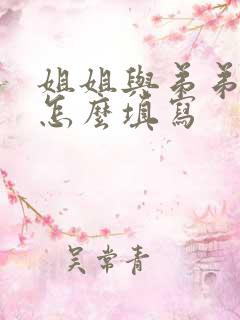 姐姐與弟弟
怎麼填寫
吴常青